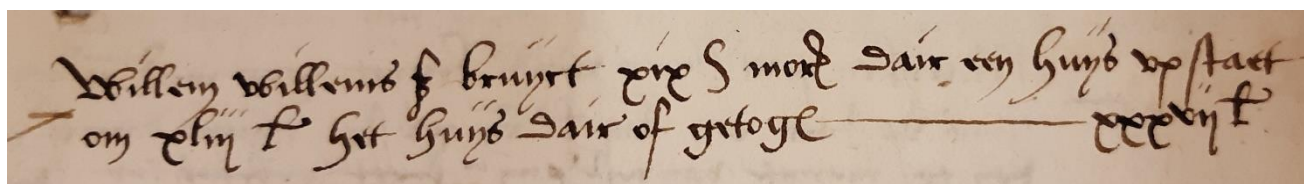 Willem willems ʒ bruyct xix ½ morẜ dair een huys vp staet
om xliij ł het huys dair of getogẜ xxxvij ł